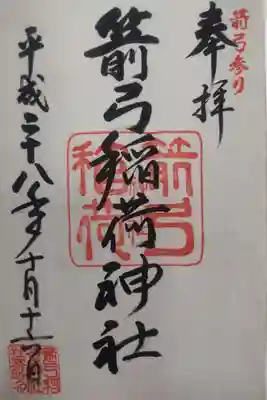 箭弓参り
奉拝
箭弓稲荷神社
箭弓稲荷
平成二十八年十月十六日